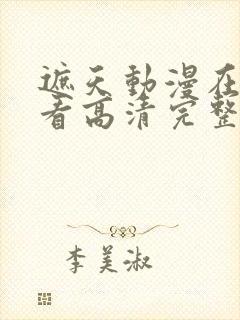 遮天動漫在
看高清完整
李美淑